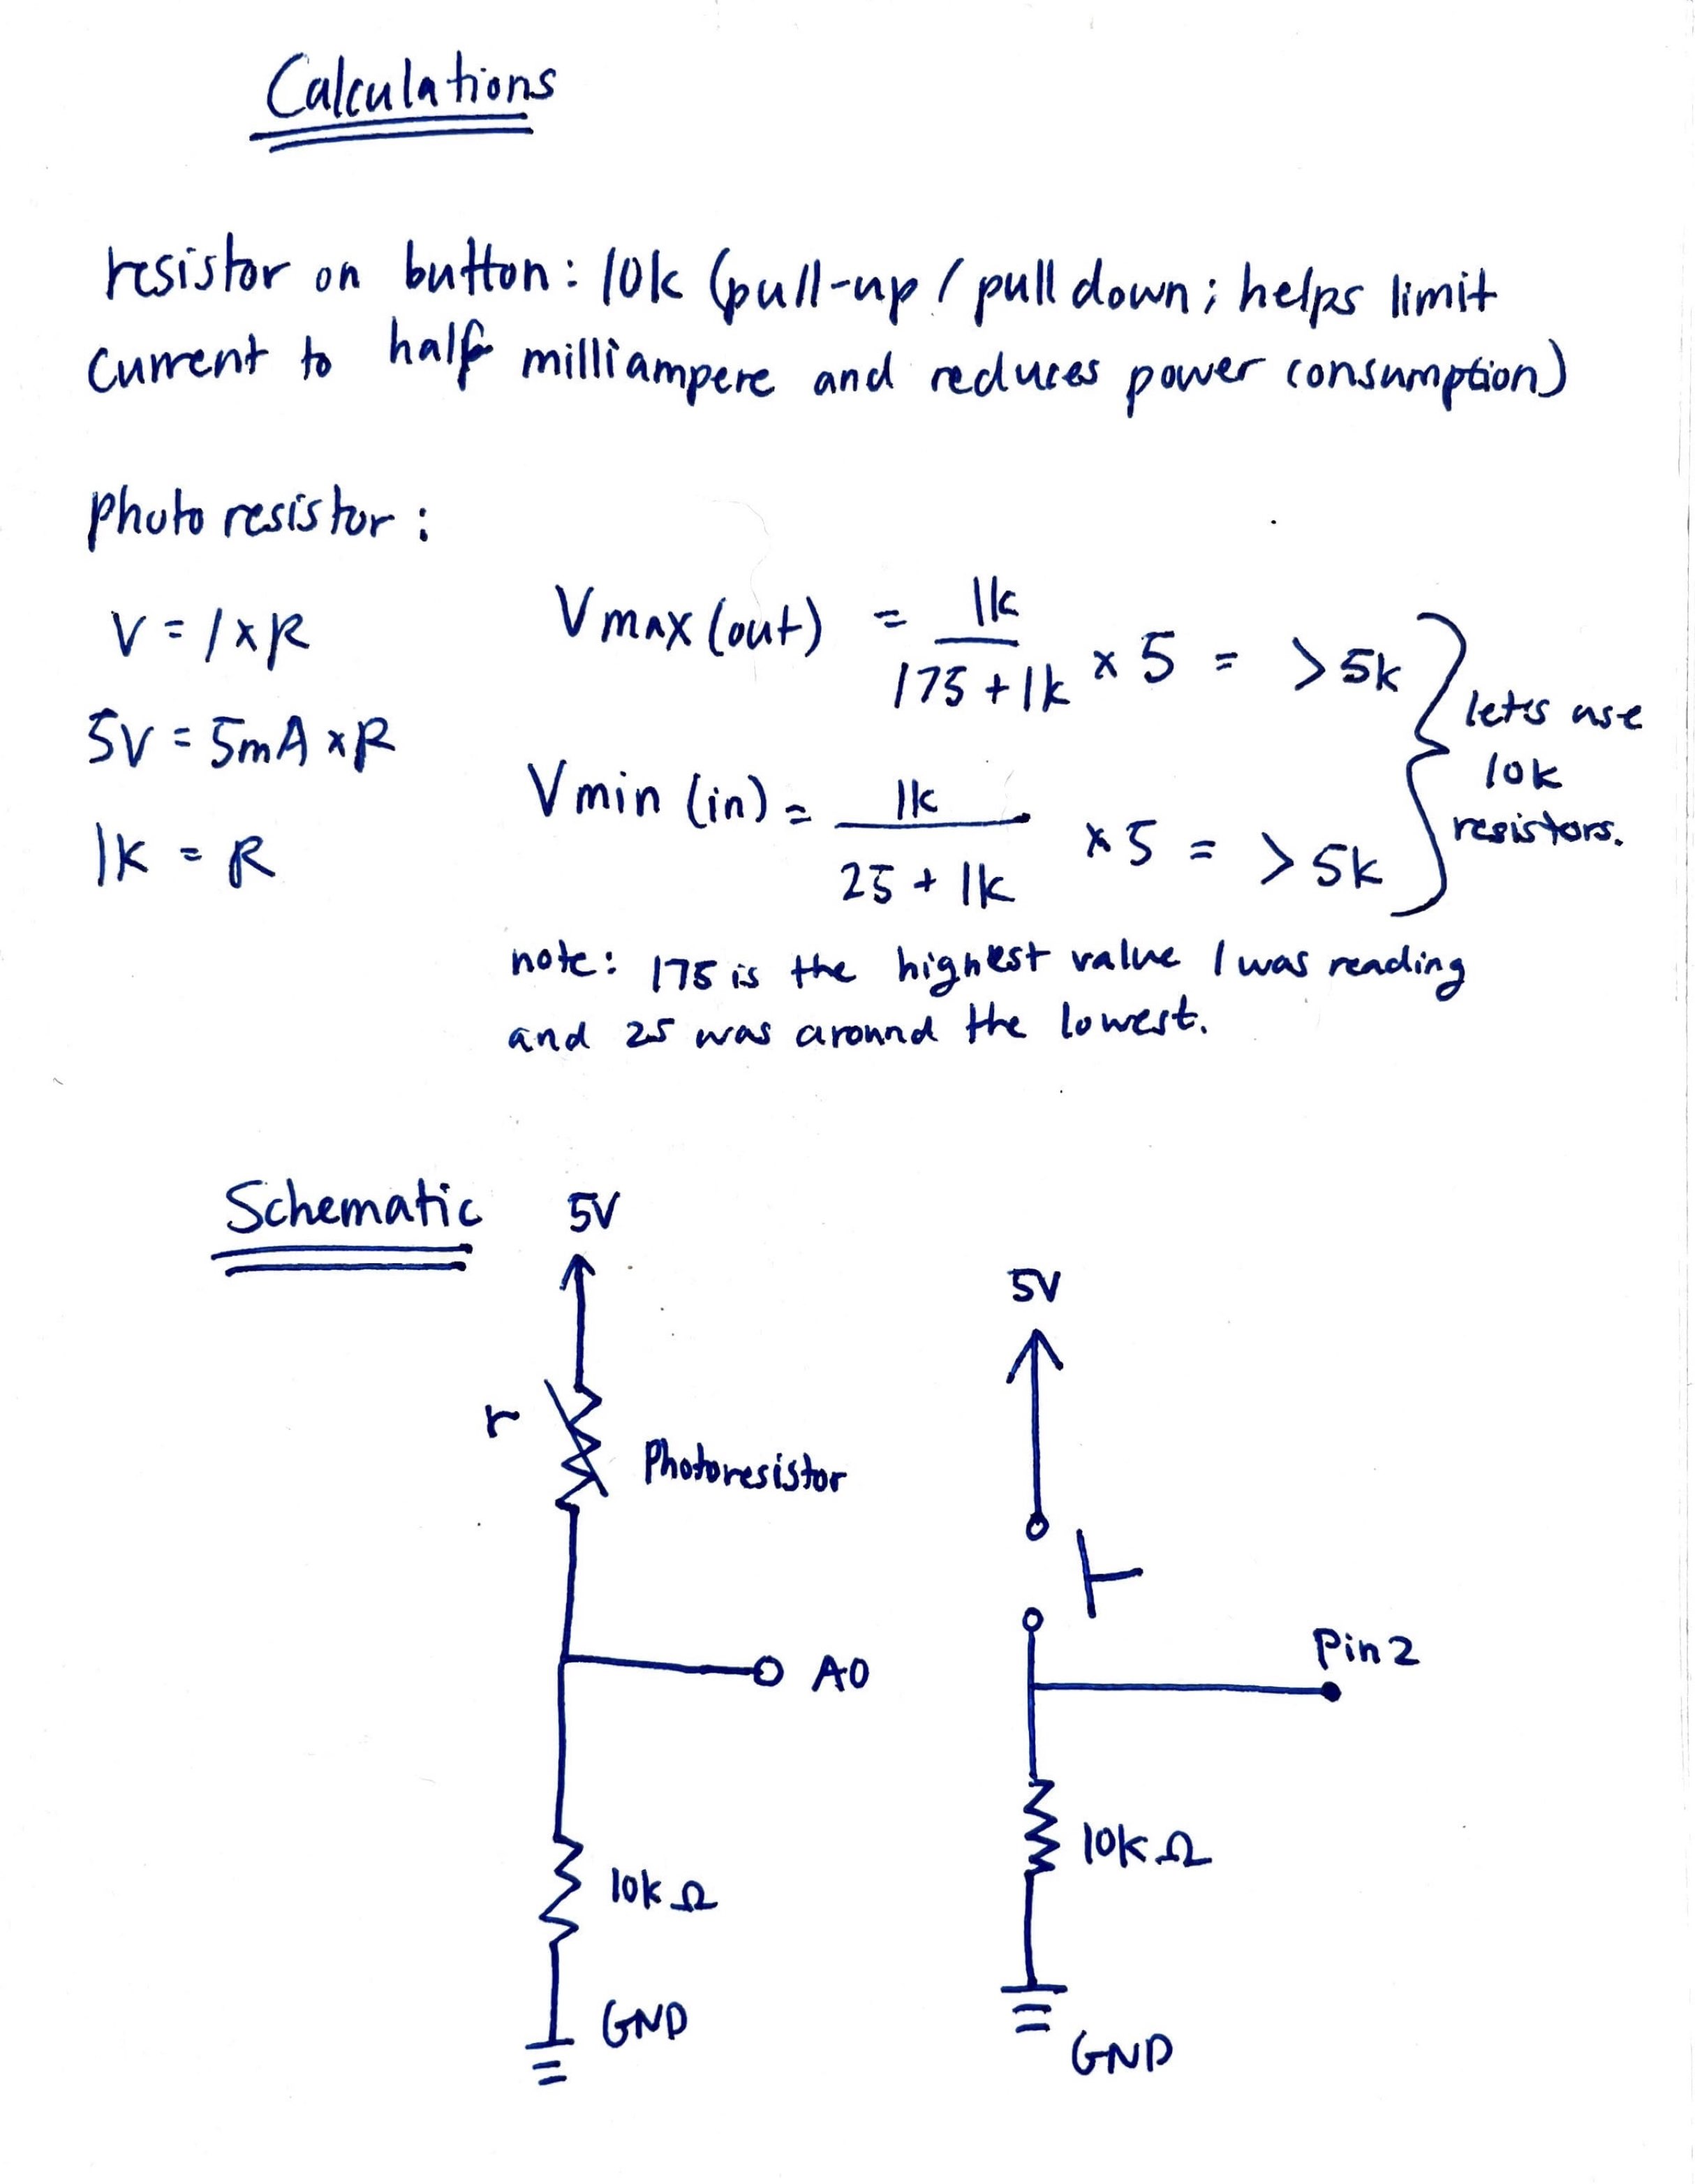 Calculations
resistor on button: 10k (pull-up / pull down; helps limit
current to half milliampere and reduces power consumption)
photo resistor:
V = I x R
5V = 5mA x R
1k = R
Vmax (out) = 1k / 175 + 1k x 5 = > 5k
Vmin (in) = 1k / 25 + 1k x 5 = > 5k
lets use
10k
resistors.
note: 175 is the highest value I was reading
and 25 was around the lowest.
Schematic
5V
r
Photoresistor
A0
10kΩ
GND
5V
Pin 2
10kΩ
GND